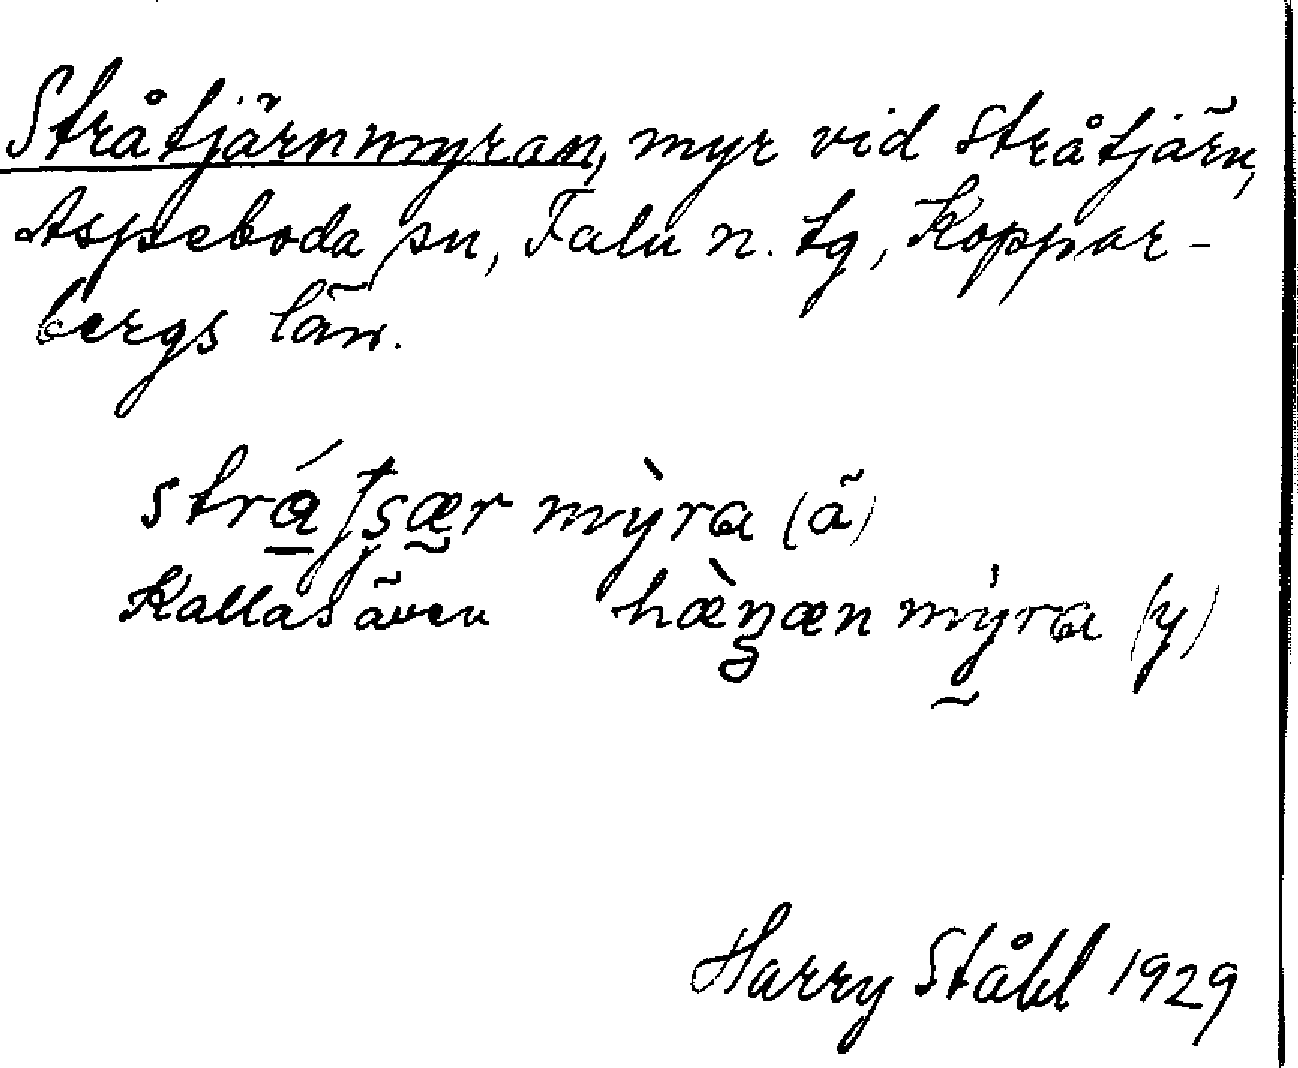 Stråtjärnmyran, myr vid Stråtjärn,
Aspeboda sn, Falu n. tg, Koppar-
bergs län.
mỳra (ä)
Kallas även mýra (y)
Harry Ståhl 1929